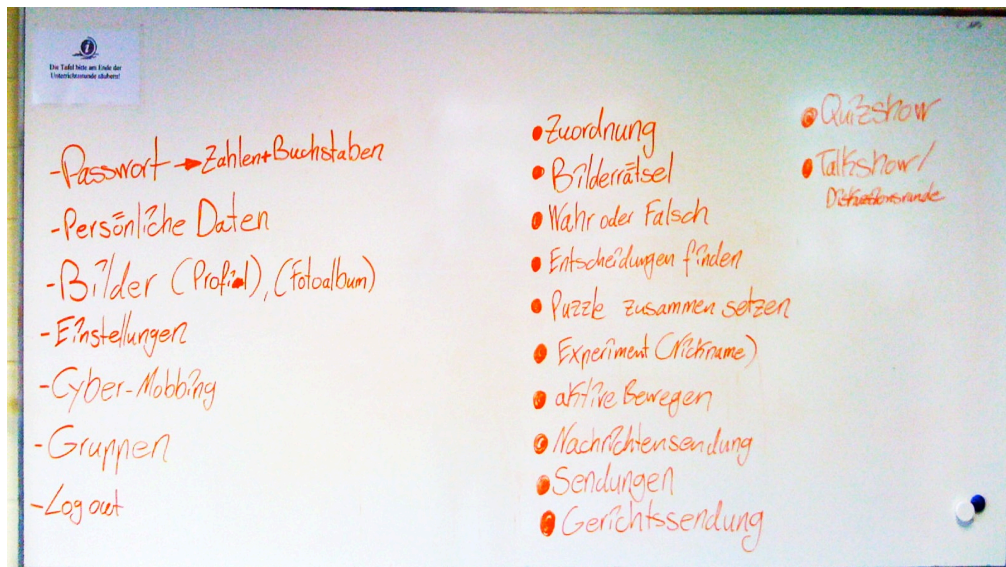 Die Tafel bitte am Ende der
Unterrichtsstunde säubern!
- Passwort → Zahlen + Buchstaben
- Persönliche Daten
- Bilder (Profil), (Fotoalbum)
- Einstellungen
- Cyber-Mobbing
- Gruppen
- Log out
• Zuordnung
• Bilderrätsel
• Wahr oder Falsch
• Entscheidungen finden
• Puzzle zusammen setzen
• Experiment (Nickname)
• aktive Bewegen
• Nachrichtensendung
• Sendungen
• Gerichtssendung
• Quizshow
• Talkshow/
Diskussionsrunde